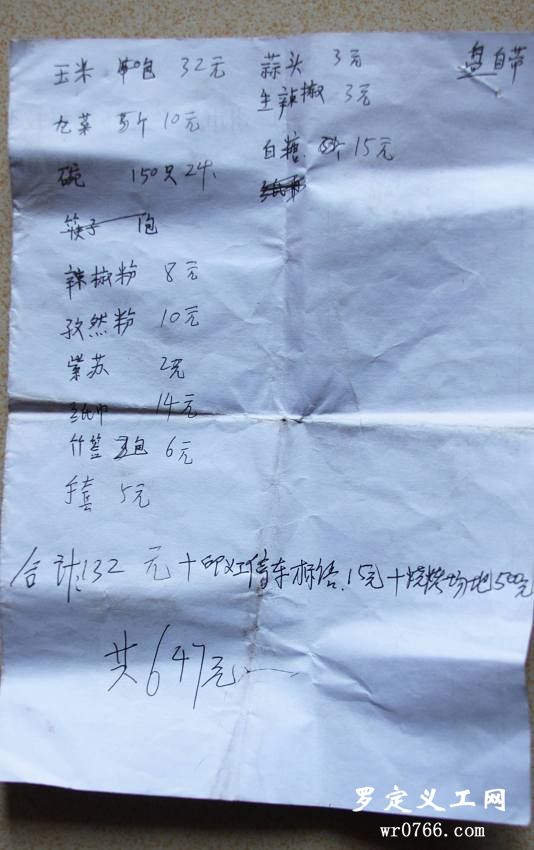 玉米 包 32元
九菜 5斤 10元
碗 150只 24
筷子 1包
辣椒粉 8元
孜然粉 10元
紫苏 2元
纸巾 14元
竹签 3包 6元
手套 5元
蒜头 3元
生辣椒 3元
白糖 15元
纸巾
盘自带
合计:132元+印义工借车标语.15元+烧烤场地500元
共647元
罗定义工网
wr0766.com